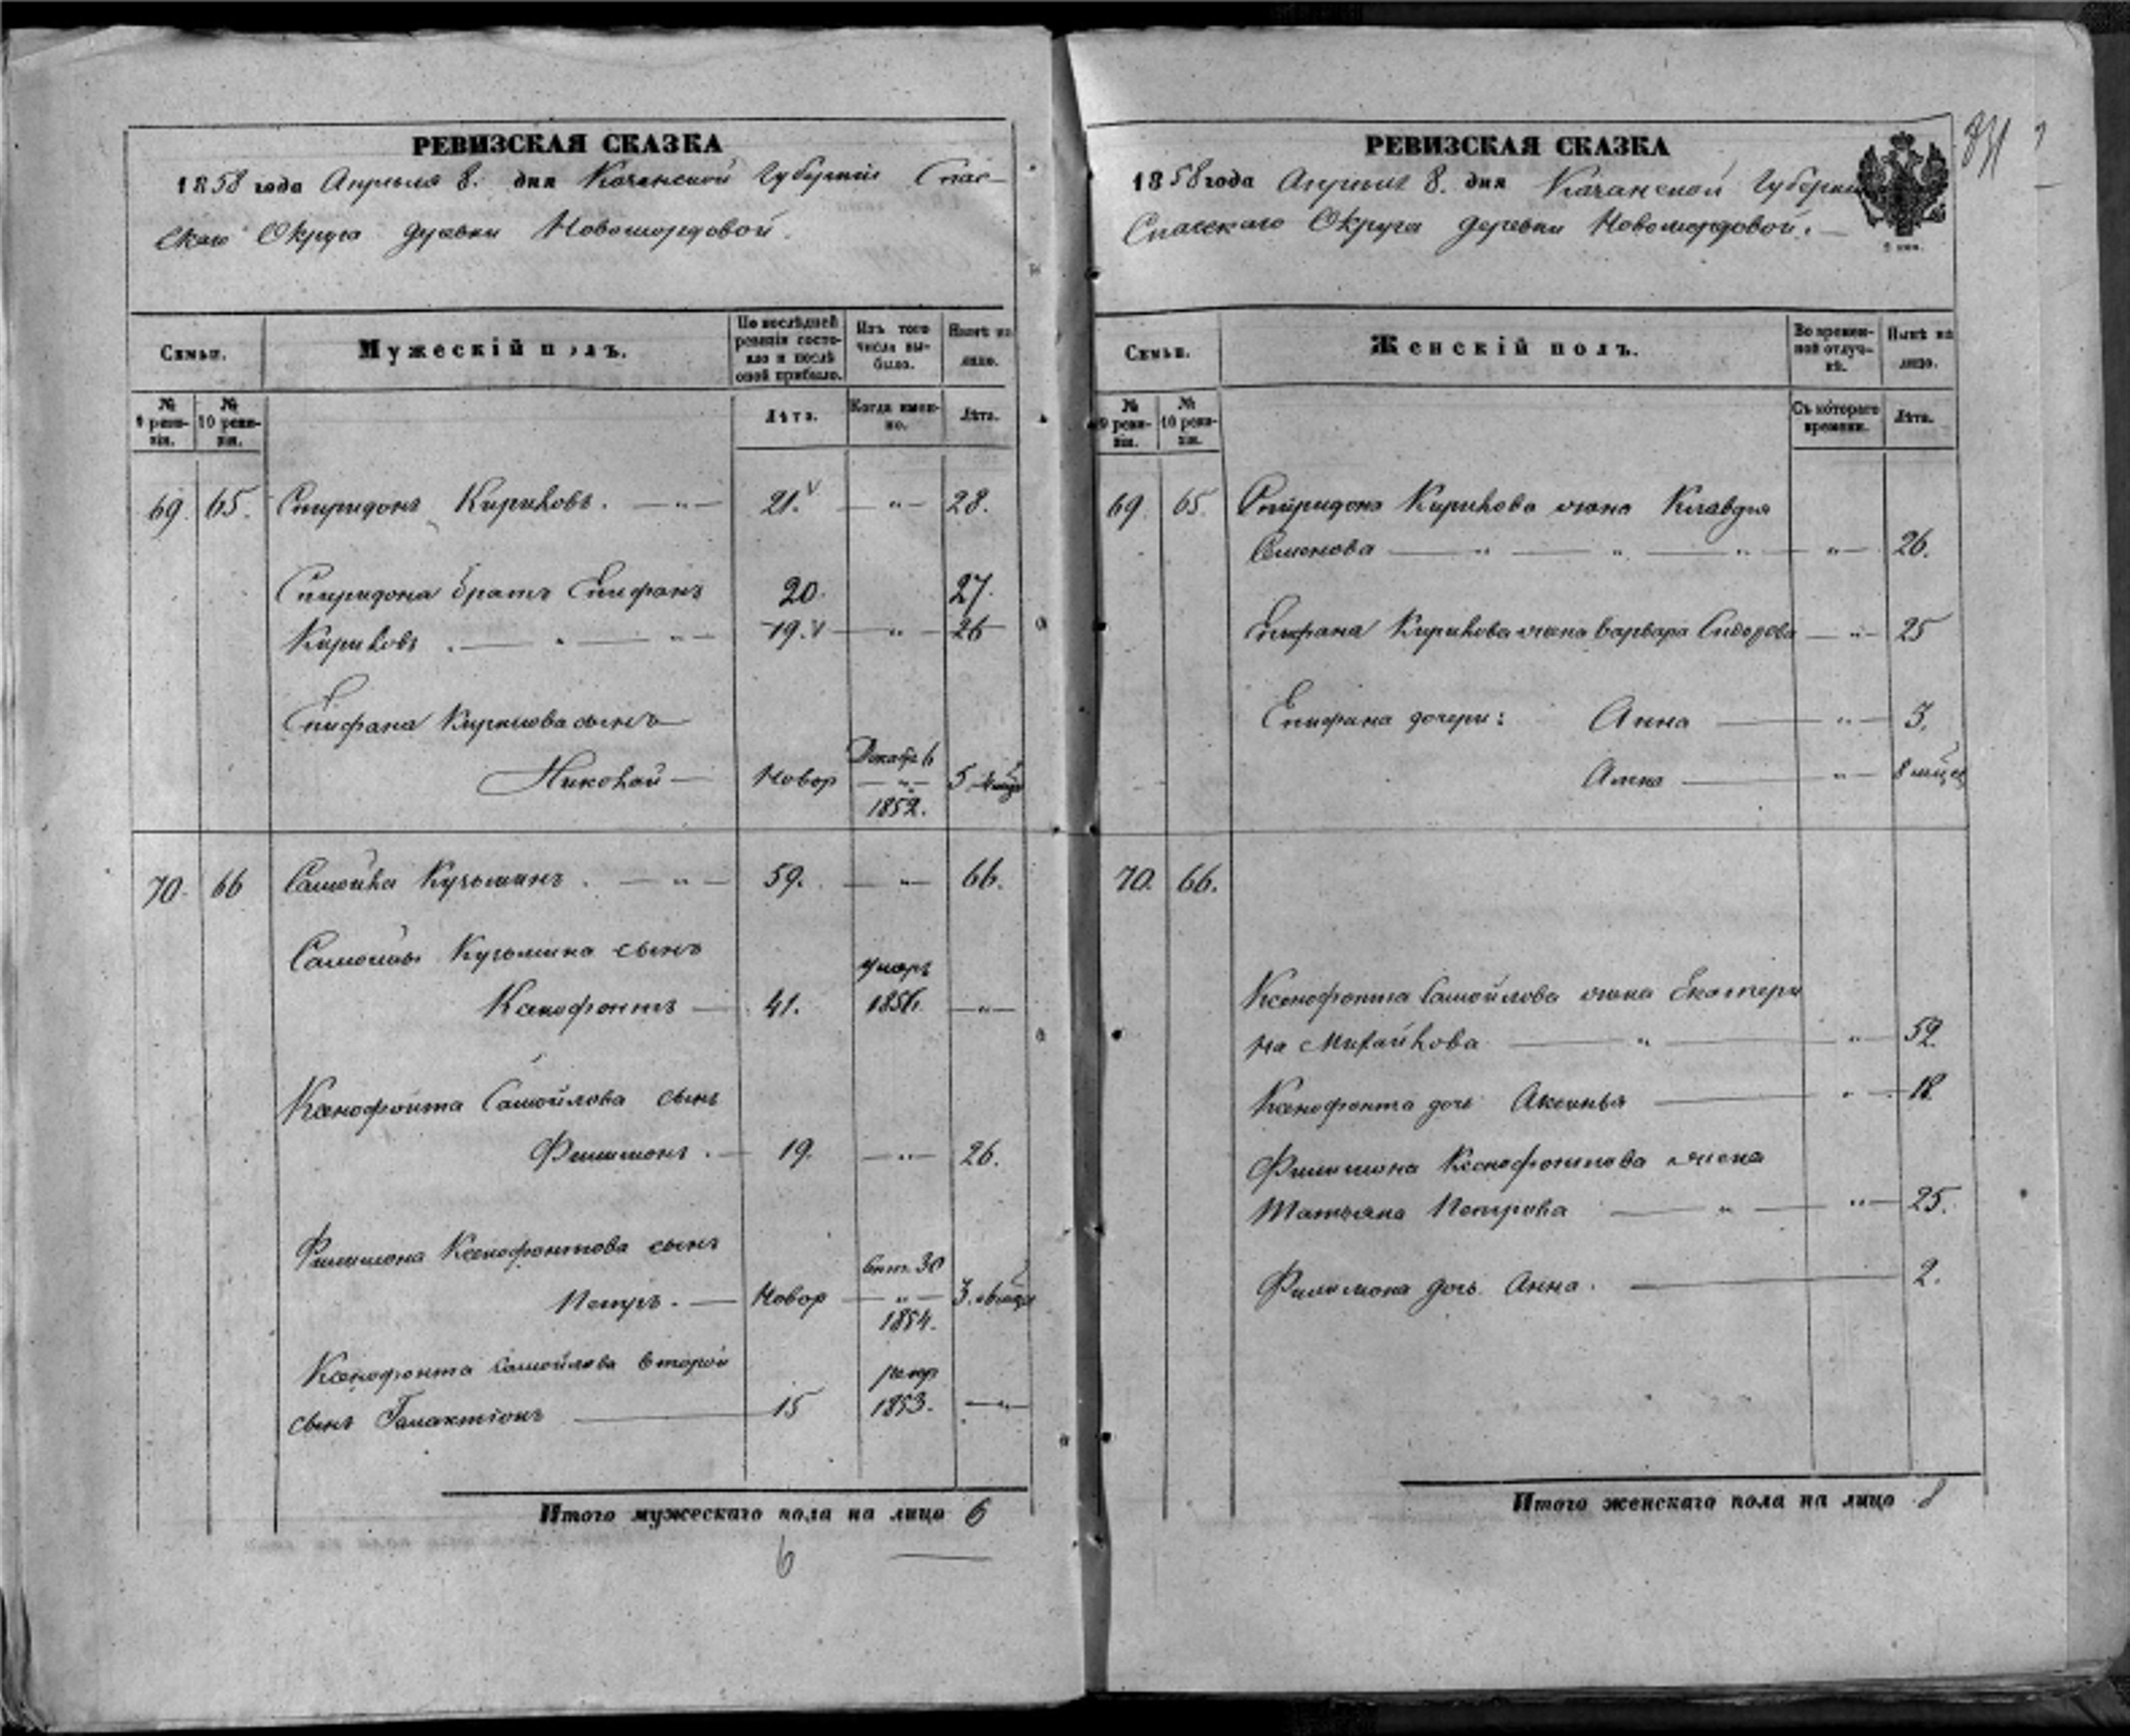 РЕВИЗСКАЯ СКАЗКА
1858 года Апреля 8. дня Казанской Губернiи Спас-
скаго Округа деревни Новомордовой.
Семьи.
Мужескiй полъ.
По послѣдней ревизiи состояло и послѣ оной прибыло.
Изъ того числа выбыло.
Нынѣ на лицо.
№ 9 ревизiи.
№ 10 ревизiи.
Лѣта.
Когда именно.
Лѣта.
69. 65. Спиридонъ Кириловъ. — „ — 21. — „ — 28.
Спиридона братъ Епифанъ 20. 27.
Кириловъ . — „ — „ — 19. — „ — 26
Епифана Кирилова сынъ
Николай — Новор Декабр 6 — „ — 1852. 5
70. 66 Самойла Кузьминъ . — „ — 59. — „ — 66.
Самойлы Кузьмина сынъ
Ксенофонтъ — 41. умеръ 1856. — „ —
Ксенофонта Самойлова сынъ
Филимонъ . — 19. — „ — 26.
Филимона Ксенофонтова сынъ
Петръ . — Новор 30 — „ — 1854. 3.
Ксенофонта Самойлова второй
сынъ Галактiонъ — 15 1853. — „ —
Итого мужескаго пола на лицо 6
6
РЕВИЗСКАЯ СКАЗКА
1858 года Апреля 8. дня Казанской Губернiи
Спасскаго Округа деревни Новомордовой. —
Семьи.
Женскiй полъ.
Во временной отлучкѣ.
Нынѣ на лицо.
№ 9 ревизiи.
№ 10 ревизiи.
Съ котораго времени.
Лѣта.
69. 65. Спиридона Кирилова жена Клавдия
Семенова — „ — „ — „ — „ — 26.
Епифана Кирилова жена Варвара Сидорова — „ — 25
Епифана дочери: Анна — „ — 3.
Алена — „ — 8 мѣцев
70. 66.
Ксенофонта Самойлова жена Екатери
на Михайлова — „ — „ — 59.
Ксенофонта дочь Аксинья — „ — 18.
Филимона Ксенофонтова жена
Татьяна Петрова — „ — „ — 25.
Филимона дочь Анна. — 2.
Итого женскаго пола на лицо 8